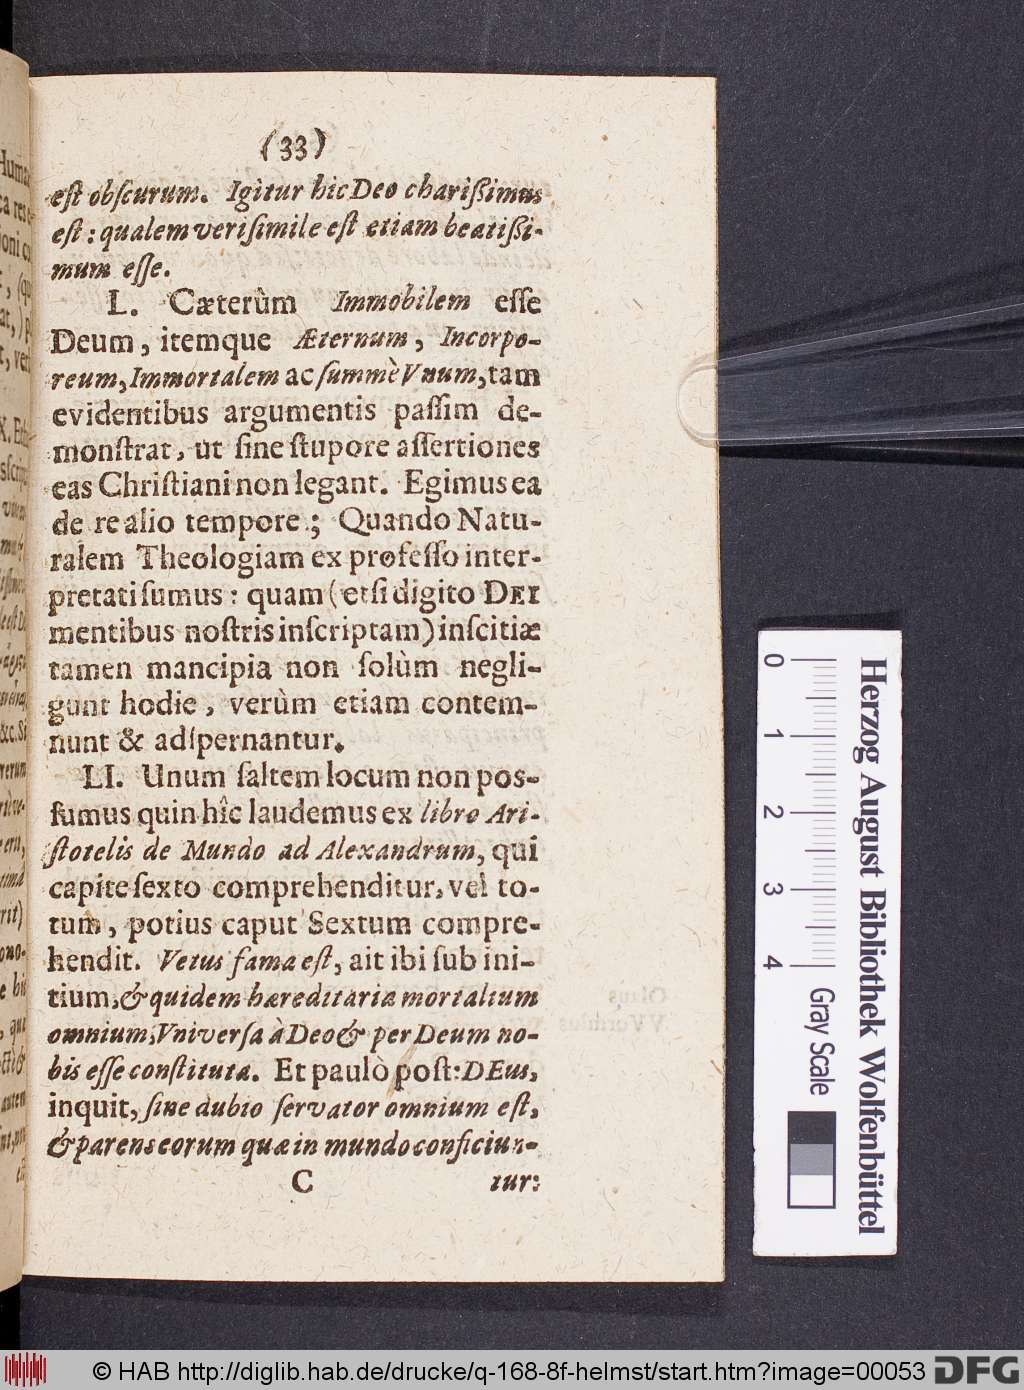 (33)
eſt obſcurum. Igitur hic Deo charißimus
eſt: qualem veriſimile eſt etiam beatißi-
mum eſſe.
L. Cæterùm Immobilem eſſe
Deum, itemque Æternum, Incorpo-
reum, Immortalem ac ſummè Vnum, tam
evidentibus argumentis paſſim de-
monſtrat, ut ſine ſtupore aſſertiones
eas Chriſtiani non legant. Egimus ea
de re alio tempore; Quando Natu-
ralem Theologiam ex profeſſo inter-
pretati ſumus: quam (etſi digito DEI
mentibus noſtris inſcriptam) inſcitiæ
tamen mancipia non ſolùm negli-
gunt hodie, verùm etiam contem-
nunt & adſpernantur.
LI. Unum ſaltem locum non pos-
ſumus quin hîc laudemus ex libro Ari-
ſtotelis de Mundo ad Alexandrum, qui
capite ſexto comprehenditur, vel to-
tum, potius caput Sextum compre-
hendit. Vetus fama eſt, ait ibi ſub ini-
tium, & quidem hæreditaria mortalium
omnium, Vniverſa à Deo & per Deum no-
bis eſſe conſtituta. Et paulò poſt: DEus,
inquit, ſine dubio ſervator omnium eſt,
& parens eorum quæ in mundo conficiun-
C tur:
0 1 2 3 4
Herzog August Bibliothek Wolfenbüttel
Gray Scale
© HAB http://diglib.hab.de/drucke/q-168-8f-helmst/start.htm?image=00053
DFG